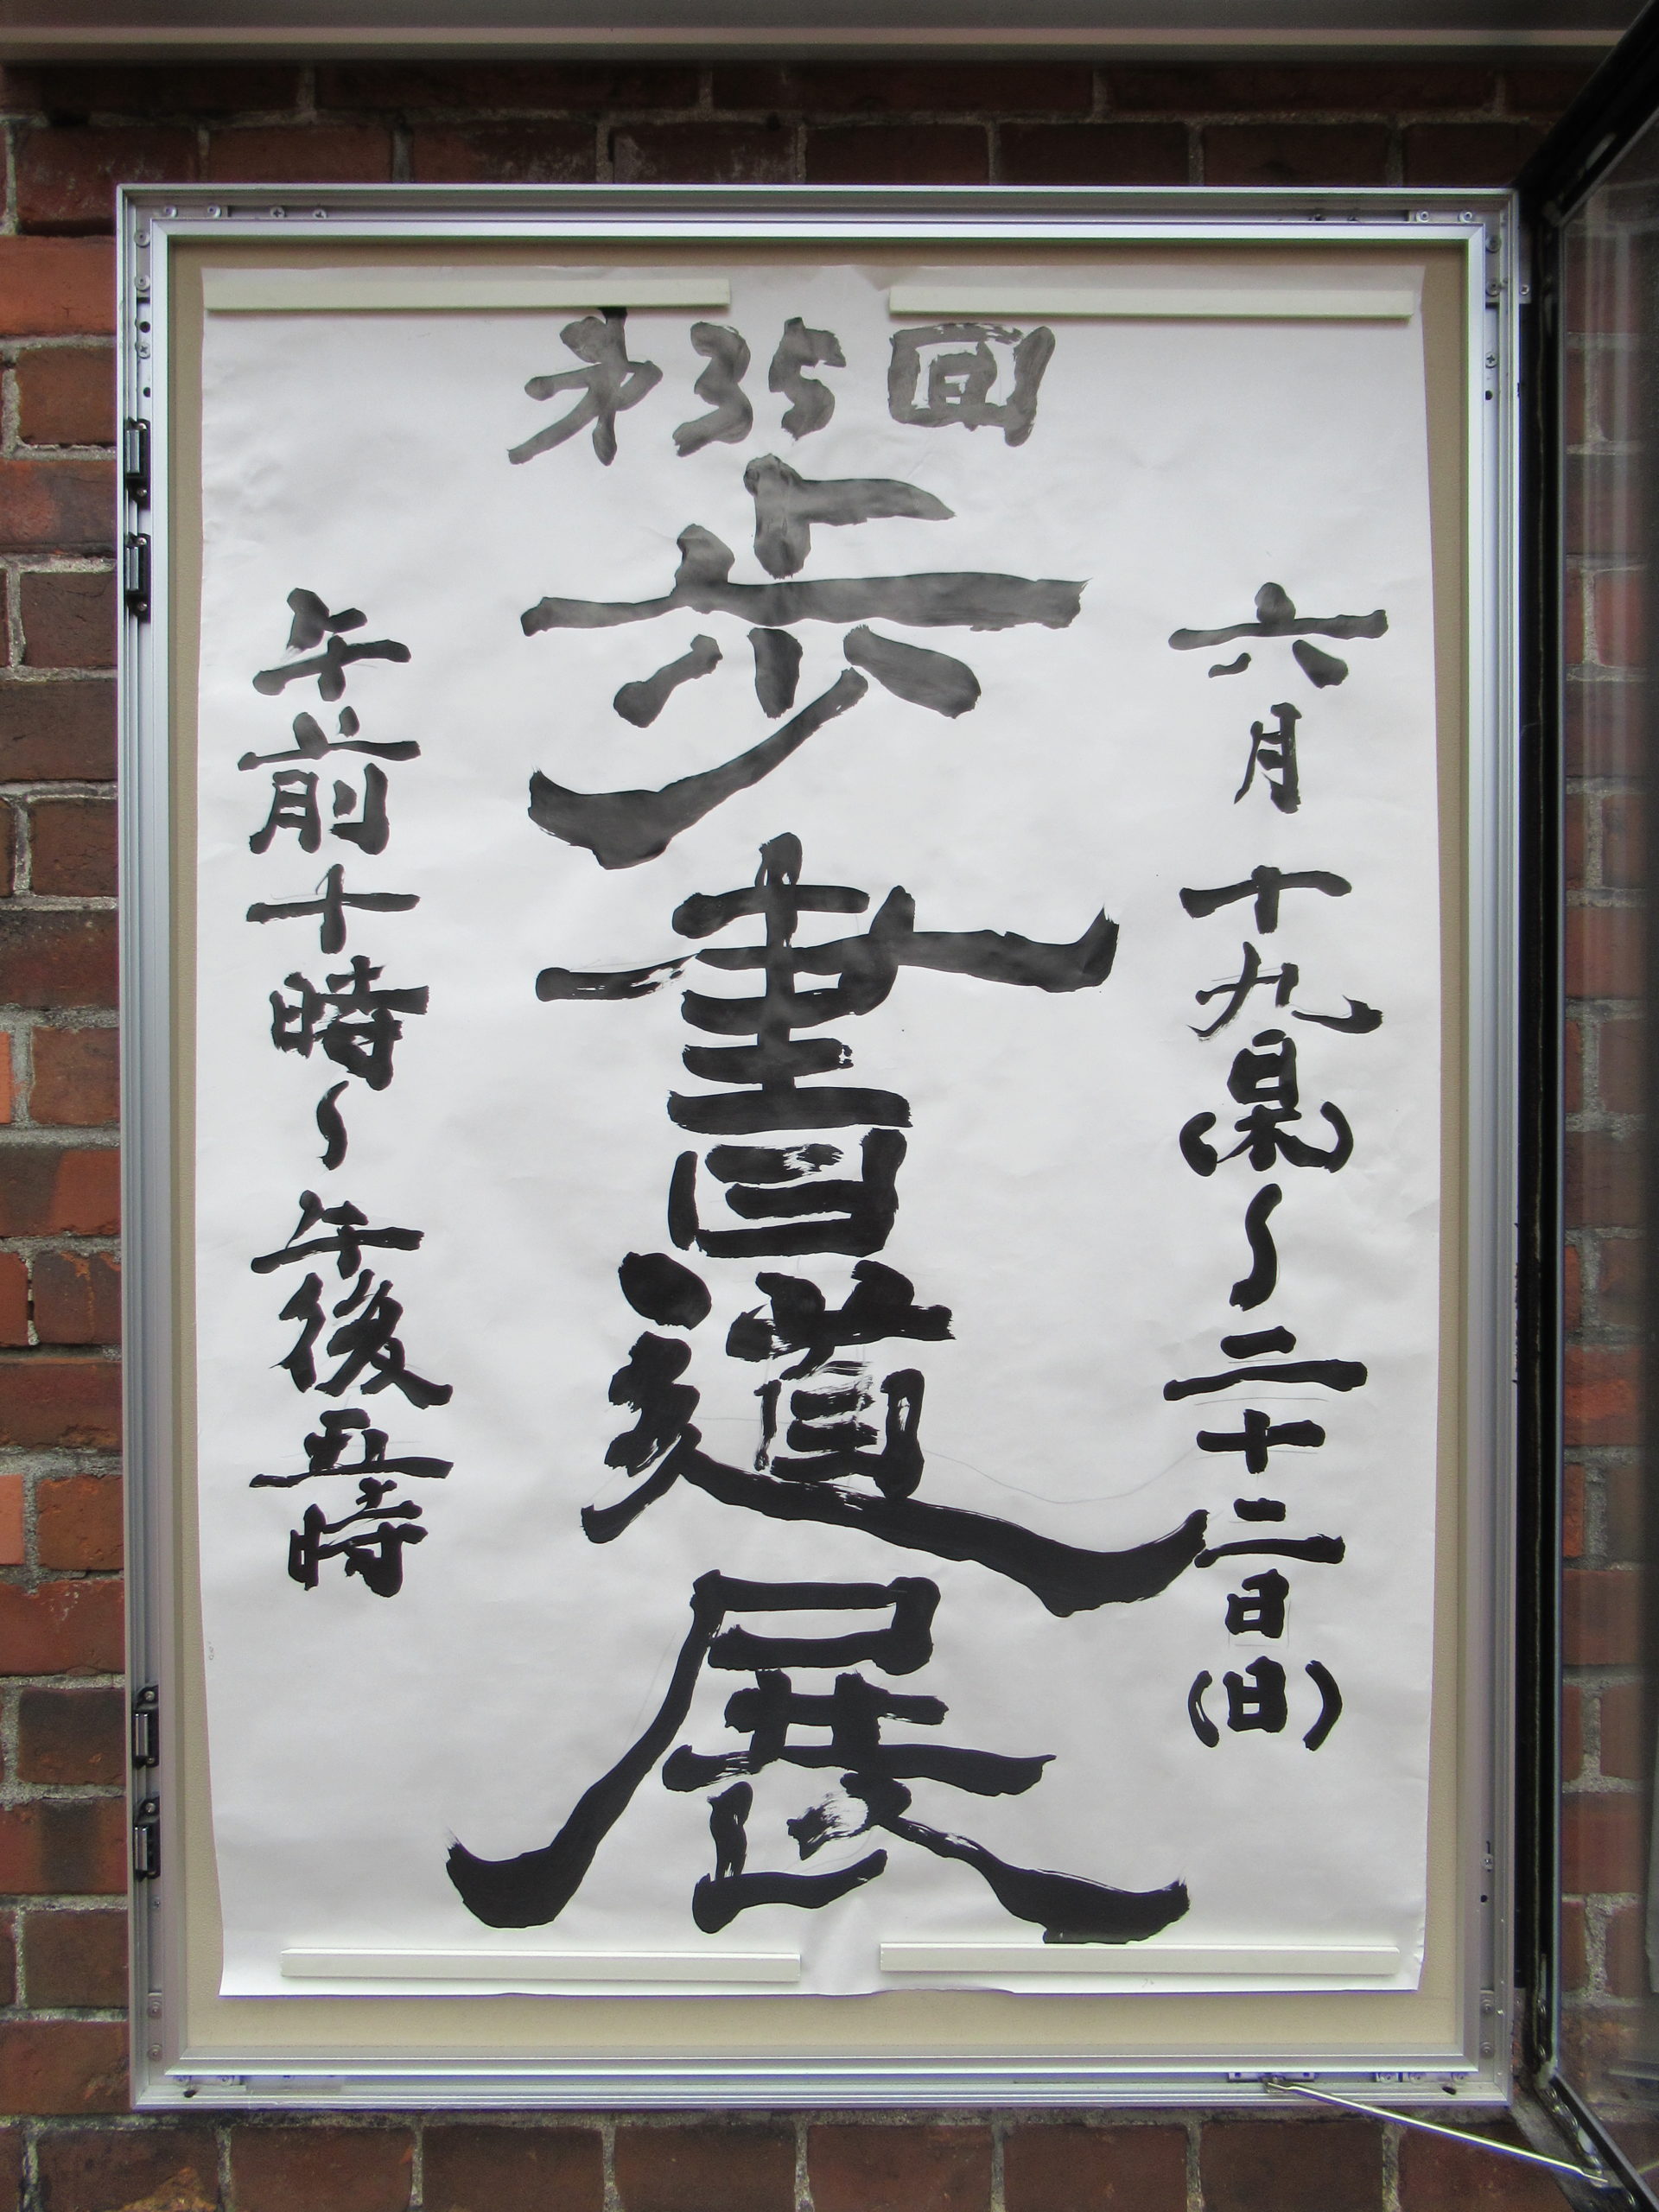 才35回
歩書道展
六月十九日(木)~二十二日(日)
午前十時~午後五時